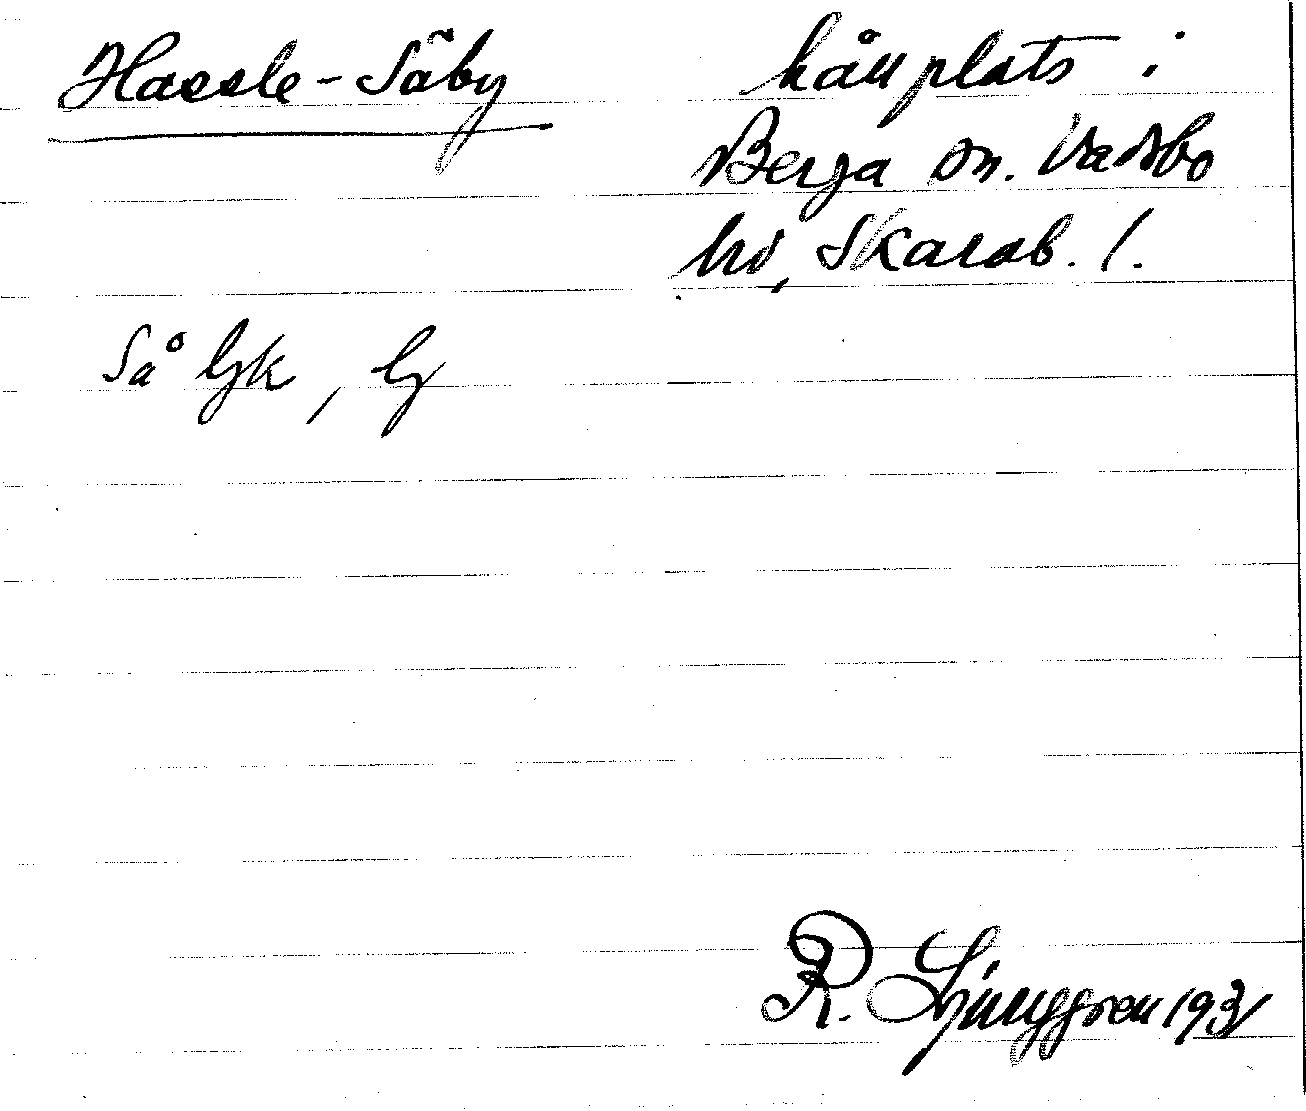 Hassle-Säby
hållplats i
Berga sn. Vadsbo
hd, Skarab. l.
Så Gjk, Gj
R. Ljunggren 1931